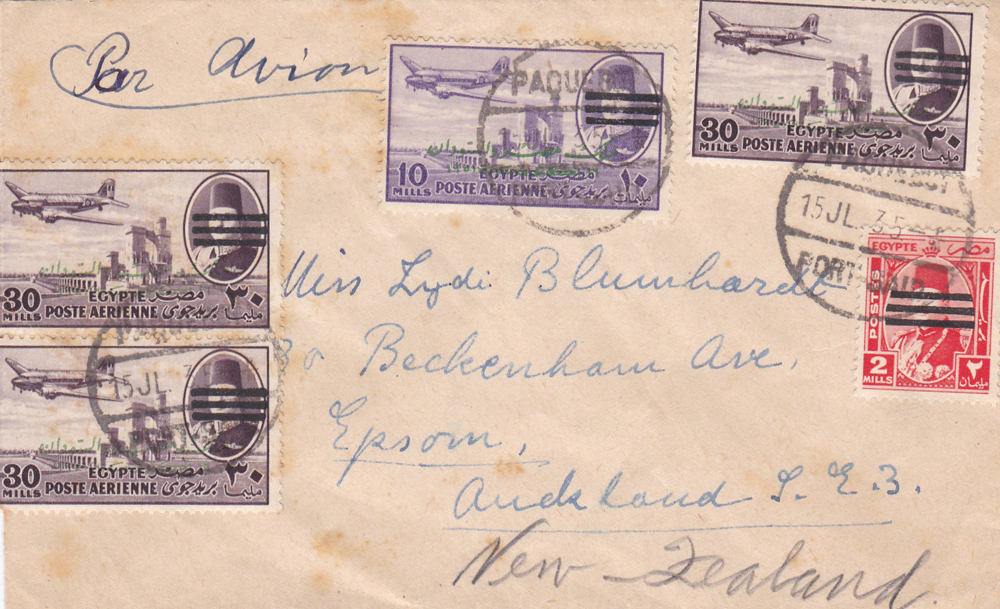 Par Avion
PAQUEBOT
10
MILLS
EGYPTE مصر
POSTE AERIENNE بريد جوى
١٠
مليمات
30
MILLS
EGYPTE مصر
POSTE AERIENNE بريد جوى
٣٠
مليما
PAQUEBOT
15 JL. 35
PORT-SAID
EGYPTE مصر
POSTS
2
MILLS
٢
مليمان
30
MILLS
EGYPTE مصر
POSTE AERIENNE بريد جوى
٣٠
مليما
15 JL. 3
30
MILLS
EGYPTE مصر
POSTE AERIENNE بريد جوى
٣٠
مليما
Miss Lydi Blumhardt
Beckenham Ave,
Epsom,
Auckland S. E. 3.
New Zealand.